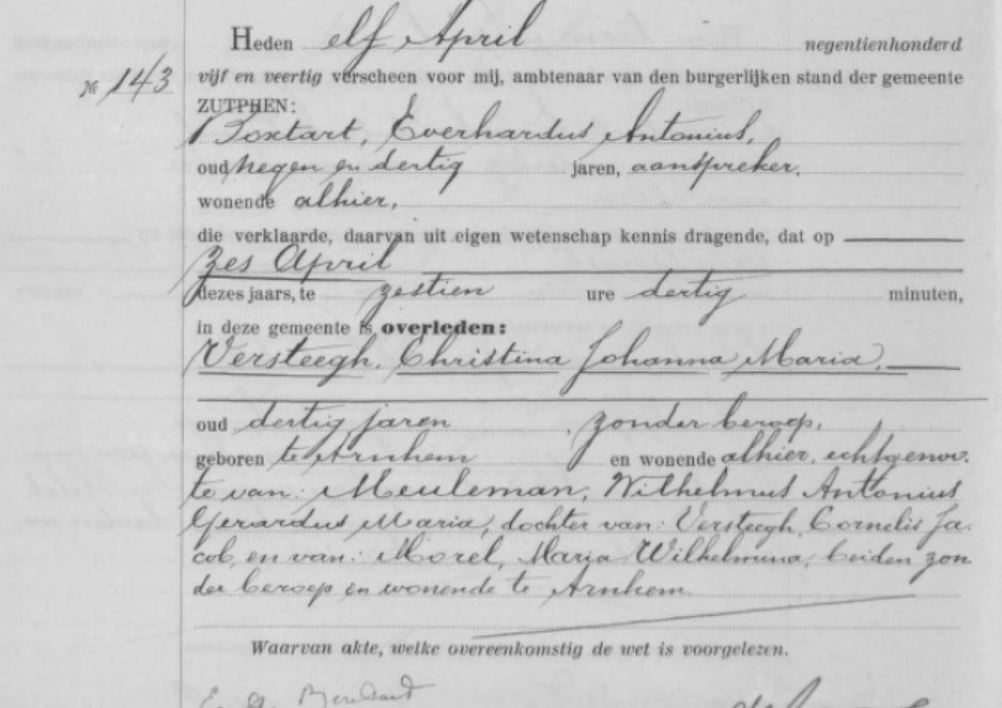 Heden elf April negentienhonderd
№ 143 vijf en veertig verscheen voor mij, ambtenaar van den burgerlijken stand der gemeente
ZUTPHEN:
Everhardus Antonius,
oud negen en dertig jaren, aanspreker,
wonende alhier,
die verklaarde, daarvan uit eigen wetenschap kennis dragende, dat op
zes April
dezes jaars, te zestien ure dertig minuten,
in deze gemeente is overleden:
Versteegh, Christina Johanna Maria,
oud dertig jaren, zonder beroep,
geboren te Arnhem en wonende alhier, echtgenoo-
te van: Meuleman, Wilhelmus Antonius
Gerardus Maria, dochter van: Versteegh, Cornelis Ja-
cob, en van: Morel, Maria Wilhelmina, beiden zon
der beroep en wonende te Arnhem
Waarvan akte, welke overeenkomstig de wet is voorgelezen.